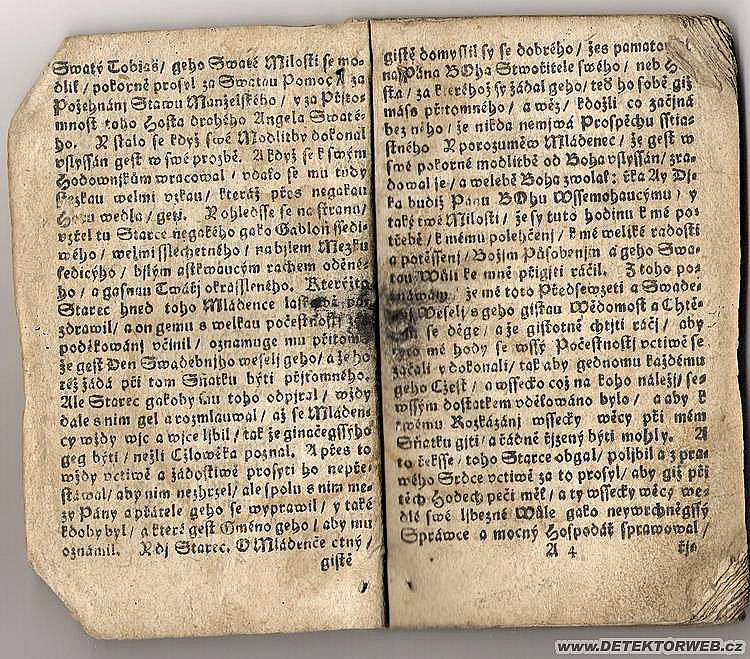 Swatý Tobiáš/ geho Swaté Milosti se mo-
dlil/ pokorně prosyl za Swatau Pomoc/ za
Požehnánj Stawu Manželského/ y za Přjto-
mnost toho Hosta drahého Angela Swaté-
ho. R stalo se když swé Modlitby dokonal
vslyssán gest w swé prozbě. A když se k swým
Hodownjkům wracowal/ vdálo se mu tudy
Stezkau welmi vzkau/ kteráž přes negakau
Horu wedla/ gjti. R ohledsse se na stranu/
vzřel tu Starce negakého gako Gabloň ssedi-
wého/ welmi sslechetného/ na bjlém Mezku
sedjcýho/ bjlým astkwaucým rachem oděné-
ho/ a gasnau Twářj okrássleného. Kterýžto
Starec hned toho Mládence laskawě poz-
zdrawil/ a on gemu s welkau počestnostj
poděkowánj včinil/ oznamuge mu přitom
že gest Den Swadebnjho weselj geho/ a že ho
též žádá při tom Sňatku býti přjtomného.
Ale Starec gakoby mu toho odpjral/ wždy
dále s njm gel a rozmlauwal/ až se Mláden-
cy wždy wjc a wjce ljbil/ tak že ginačegssýho
geg býti/ nežli Cžlowěka poznal. A přes to
wždy vctiwě a žádostiwě prosyti ho nepře-
stáwal/ aby njm nezhrzel/ ale spolu s njm me-
zy Pány a přátele geho se wyprawil/ y také
kdoby byl/ a které gest Gméno geho/ aby mu
oznámil. Rdj Starec. O Mládenče ctný/
gistě
gistě domyslil sy se dobrého/ žes pamatowal
na Pána BOha Stwořitele swého/ neb Ho-
sta/ za kteréhož sy žádal geho/ teď ho sobě giž
máss přjtomného/ a wěz/ kdožli co začjná
bez něho/ že nikda nemjwá Prospěchu sstia-
stného. R porozuměw Mládenec/ že gest w
swé pokorné modlitbě od Boha vslyssán/ zra-
dowal je/ a welebě Boha zwolal: řka Ay Dj-
ka budiž Pánu BOhu Wssemohaucýmu/ y
také twé Milosti/ že sy tuto hodinu k mé po-
třebě/ k mému polehčenj/ k mé weliké radosti
a potěssenj/ Božjm Působenjm a geho Swa-
tau Wůlj ke mně přigjti ráčil. Z toho po-
znáwám/ že mé toto Předsewzetj a Swade-
bnj Weselj s geho gistau Wědomost a Chtě-
se děge/ a že gistotně chtjti ráčj/ aby
tyto mé hody se wssý Počestnostj vctiwě se
začali y dokonali/ tak aby gednomu každému
geho Cžest/ a wssecko což na koho náležj/ se-
wssým dostatkem vděłowáno bylo/ a aby k
twému Rozkázánj wssecky wěcy při mém
Sňatku gjti/ a řádně řjzený býti mohly. A
to řeksse/ toho Starce obgal/ poljbil a z pra-
wého Srdce vctiwě za to prosyl/ aby giž při
těch Hodech péči měl/ a ty wssecky wěcy we-
dlé swé ljbezné Wůle gako neywrchněgssý
Spráwce a mocný Hospodář sprawowal/
A 4 řjz
www.DETEKTORWEB.cz